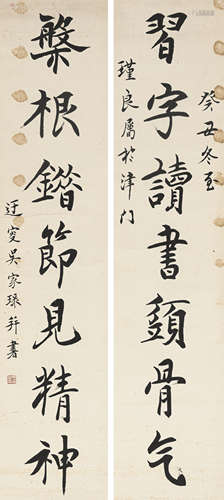 癸丑冬至
習字讀書骨气
瑾良屬於津门
槃根錯節見精神
迂叟吴家琭并書